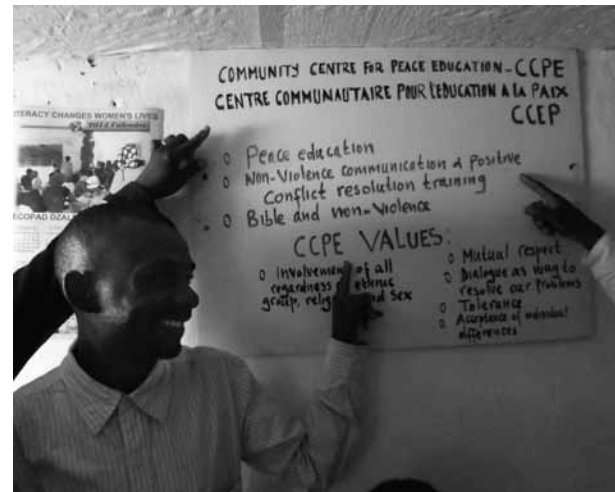 COMMUNITY CENTRE FOR PEACE EDUCATION - CCPE
CENTRE COMMUNAUTAIRE POUR L'EDUCATION A LA PAIX
CCEP
o Peace education
o Non-Violence communication & Positive
Conflict resolution training
o Bible and non-Violence
CCPE VALUES:
o Involvement of all
regardness of ethnic
group, and Sex
o Mutual respect
o Dialogue as way to
resolve our Problems
o Tolerance
o Acceptance of individual
differences
LITERACY CHANGES WOMEN'S LIVES
2014 Calendar
ECOPAD DZAL